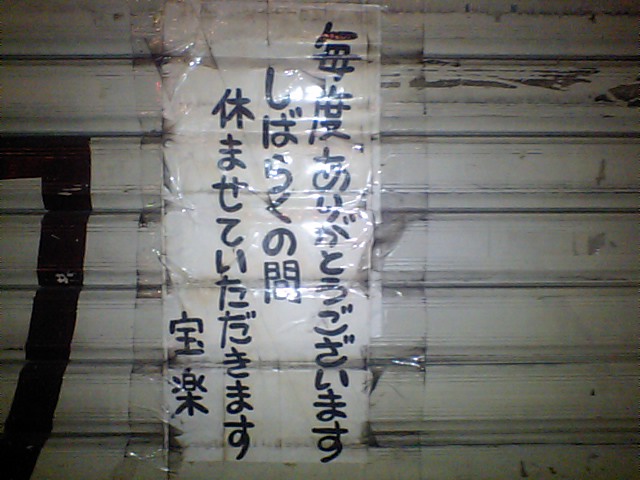 毎度ありがとうございます
しばらくの間
休ませていただきます
宝楽